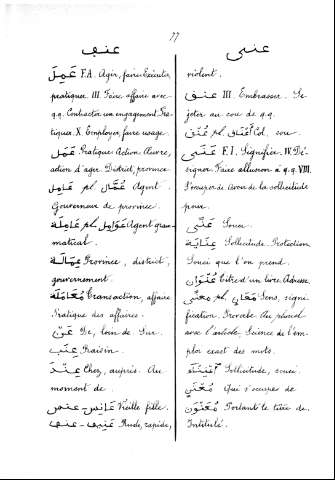 77
عنف
عَمِلَ F.A. Agir, faire Exécuter,
pratiquer. III. Faire affaire avec
q.q. Contracter un engagement Pra-
tiquer. X. Employer, faire usage.
عَمَل Pratique Action Œuvre,
action d'agir. District, province
عَامِل pl. عُمَّال Agent.
Gouverneur de province.
عَامِلَة pl. عَوَامِل Agent gram-
matical.
عِمَالَة Province, district,
gouvernement.
مُعَامَلَة Transaction, affaire
Pratique des affaires.
عَنْ De, loin de Sur.
عِنَب Raisin.
عِنْدَ Chez, auprès. Au
moment de.
عَانِس - عنس Vieille fille.
عَنِيف - عنف Rude, rapide,
عنى
violent.
عنق III. Embrasser. Se
jeter au cou de q.q.
عُنُق pl. أَعْنَاق Col, cou.
عَنَى F.I. Signifier. IV. Dé-
signer Faire allusion à q.q. VIII.
S'occuper de Avoir de la sollicitude
pour.
Souci.
عِنَايَة Sollicitude. Protection
Souci que l'on prend.
عُنْوَان Titre d'un livre. Adresse.
مَعْنًى pl. مَعَانٍ Sens, signi-
fication. Proverbe Au pluriel
avec l'article, Science de l'em-
ploi exact des mots.
Sollicitude, souci.
Qui s'occupe de
مُعَنْوَن Portant le titre de.
Intitulé.